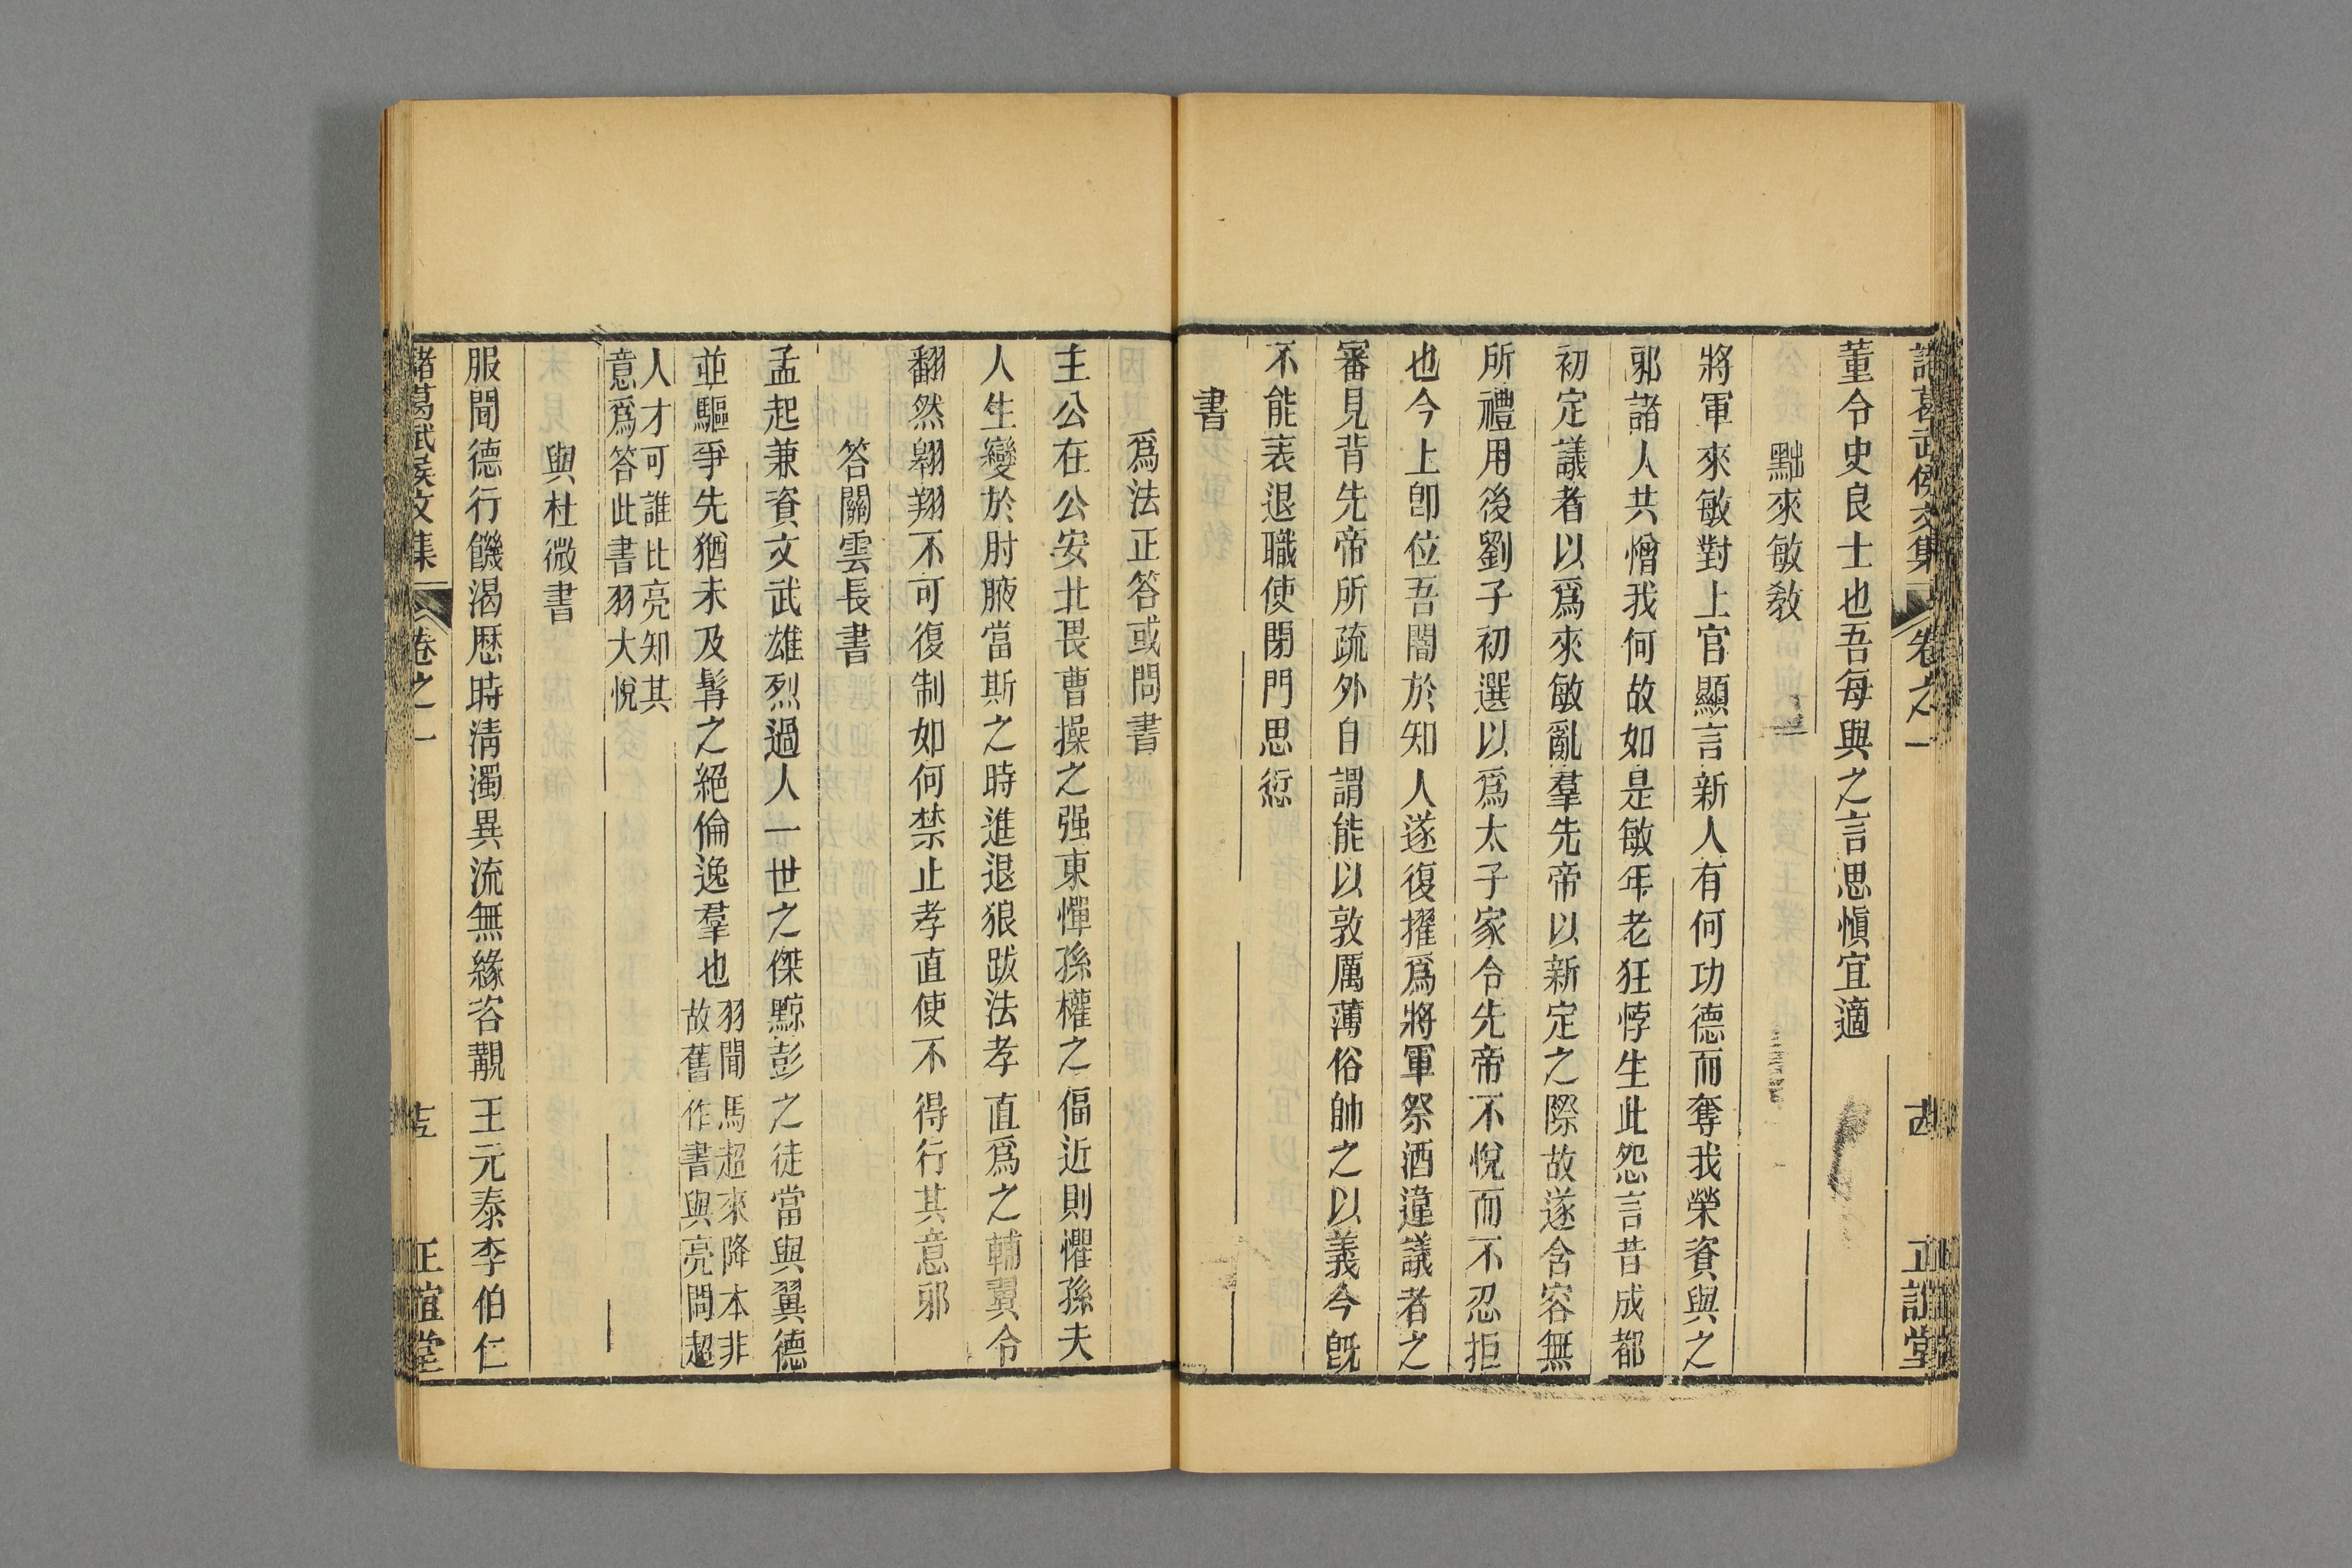 諸葛武侯文集 卷之一 古 正誼堂
董令史良士也吾每與之言思愼宜適
黜來敏教
將軍來敏對上官顯言新人有何功德而奪我榮資與之
邪諸人共憎我何故如是敏年老狂悖生此怨言昔成都
初定議者以爲來敏亂羣先帝以新定之際故遂含容無
所禮用後劉子初選以爲太子家令先帝不悅而不忍拒
也今上卽位吾闇於知人遂復擢爲將軍祭酒違議者之
審見背先帝所疏外自謂能以敦厲薄俗帥之以義今旣
不能表退職使閉門思愆
書
爲法正答或問書
主公在公安北畏曹操之强東憚孫權之偪近則懼孫夫
人生變於肘腋當斯之時進退狼跋法孝直爲之輔翼令
翻然翱翔不可復制如何禁止孝直使不得行其意邪
答關雲長書
孟起兼資文武雄烈過人一世之傑黥彭之徒當與翼德
並驅爭先猶未及髯之絕倫逸羣也
羽聞馬超來降本非
故舊作書與亮問超
人才可誰比亮知其
意爲答此書羽大悅
與杜微書
服聞德行饑渴歷時淸濁異流無緣咨覯王元泰李伯仁
諸葛武侯文集 卷之一 十五 正誼堂